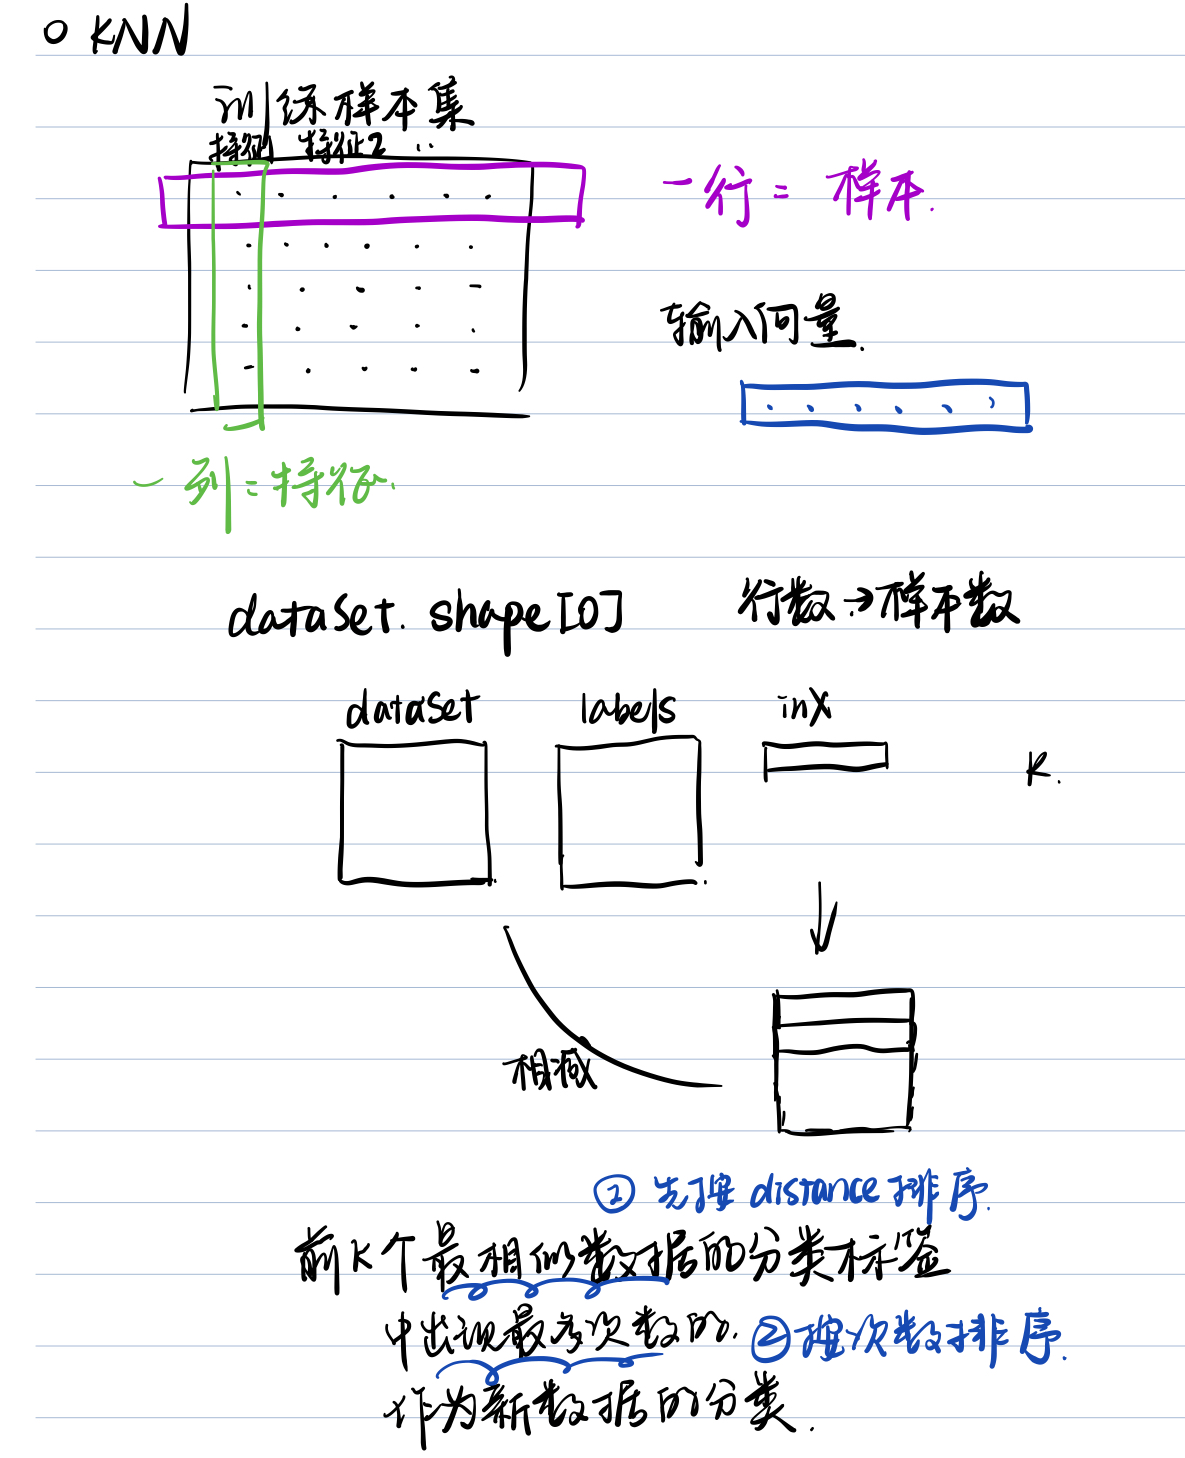 KNN
训练样本集
特征1 特征2 ..
一行 = 样本.
输入向量.
一列 = 特征.
dataSet. shape[0] 行数→样本数
dataSet labels inX
K.
相减
① 先按 distance 排序.
前K个最相似数据的分类标签
中出现最多次数的. ②按次数排序.
作为新数据的分类.